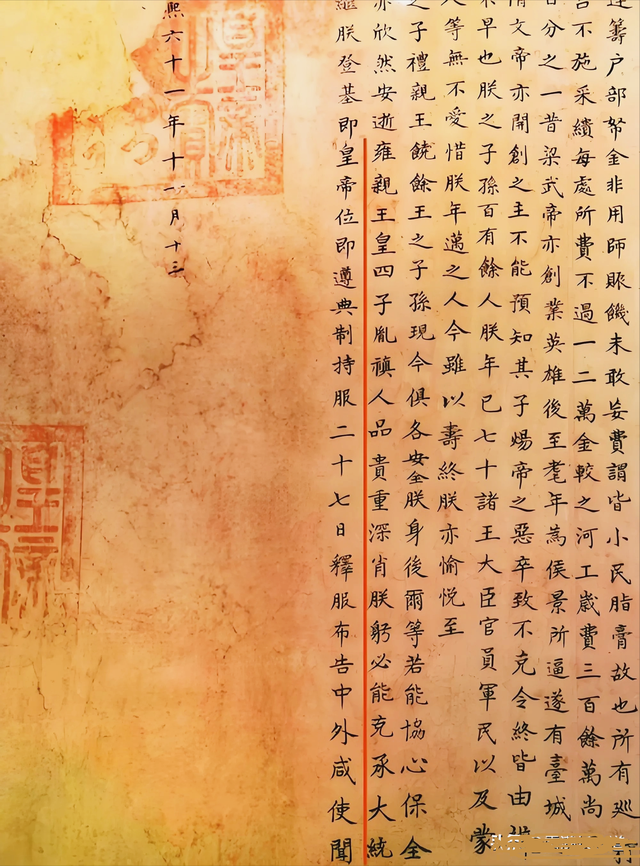 籌户部帑金非用師賑饑未敢妄費謂皆小民脂膏故也所有巡
不施采繢每處所費不過一二萬金較之河工歲費三百餘萬尚
分之一昔梁武帝亦創業英雄後至耄年為侯景所逼遂有臺城
隋文帝亦開創之主不能預知其子煬帝之惡卒致不克令終皆由
不早也朕之子孫百有餘人朕年已七十諸王大臣官員軍民以及蒙
人等無不愛惜朕年邁之人今雖以壽終朕亦愉悦至
之子禮親王饒餘王之子孫現今俱各安全朕身後爾等若能協心保全
亦欣然安逝雍親王皇四子胤禛人品貴重深肖朕躬必能克承大統
繼朕登基即皇帝位即遵典制持服二十七日釋服布告中外咸使聞
熙六十一年十一月十三